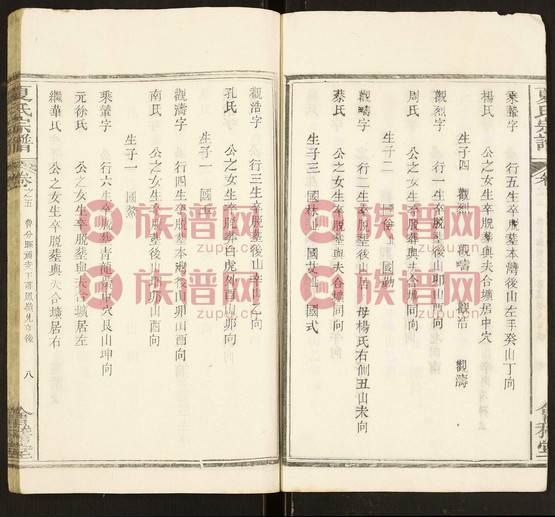 夏氏宗譜
乘肇字 行五生卒脫葬本灣後山左手癸山丁向
楊氏 公之女生卒脫葬與夫合壙居中穴
生子四 觀烈 觀疇 觀浩 觀濤
觀烈字 行一生卒脫葬後山卯山酉向
周氏 公之女生卒脫葬與夫合壙同向
生子二 國徐 國勛
觀疇字 行二生卒脫葬後山居中 母楊氏右側丑山未向
蔡氏 公之女生卒脫葬與夫合壙同向
生子三 國林 國文 國式
觀浩字 行三生卒脫葬後山辛山乙向
孔氏 公之女生卒脫葬白虎外酉山卯向
生子一 國
觀濤字 行四生卒脫葬本灣後山卯山酉向
南氏 公之女生卒脫葬後山卯山酉向
生子一 國然
乘肇字 行六生卒脫葬青龍中穴艮山坤向
元徐氏 公之女生卒脫葬與夫合壙居左
繼華氏 公之女生卒脫葬與夫合壙居右
夏氏宗譜 卷之五 八 會稽堂
族谱网
zupu.cn